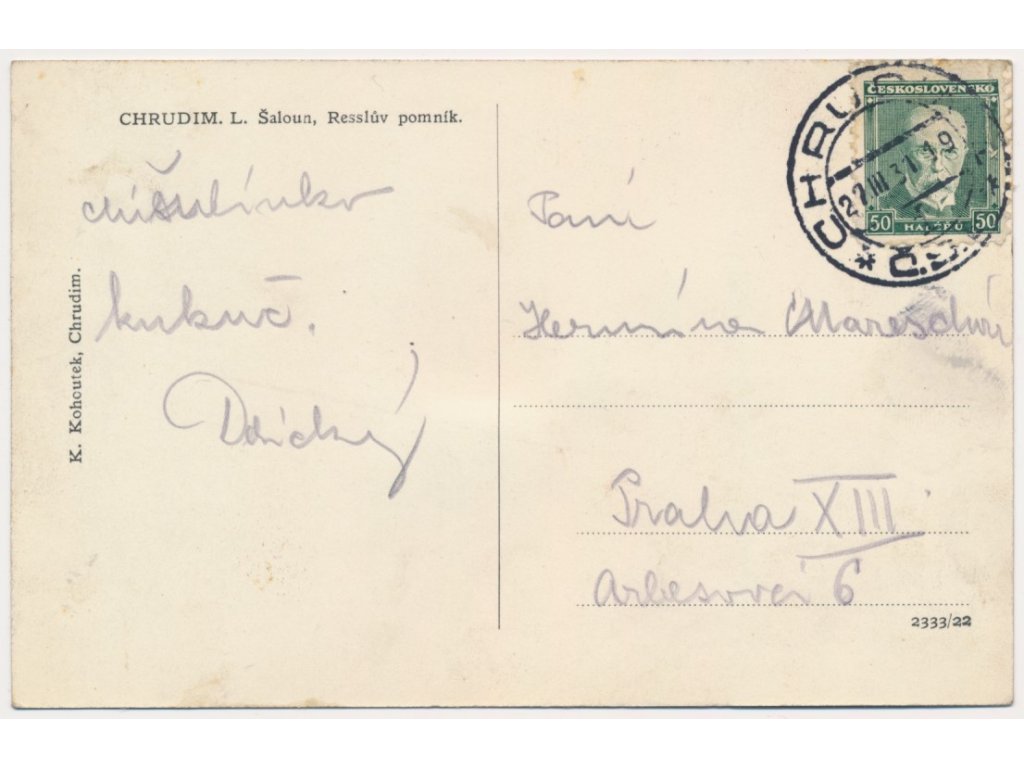 CHRUDIM. L. Šaloun, Resslův pomník.
kukuč.
K. Kohoutek, Chrudim.
ČESKOSLOVENSKO
50 HALÉŘŮ 50
27.III.31.19
* Č.S.
Paní
Hermína
Praha XIII
Arbesova 6
2333/22